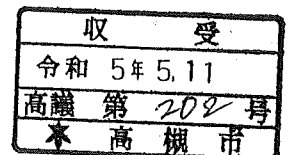 収受
令和 5年 5.11
高議 第 202 号
★ 高槻市